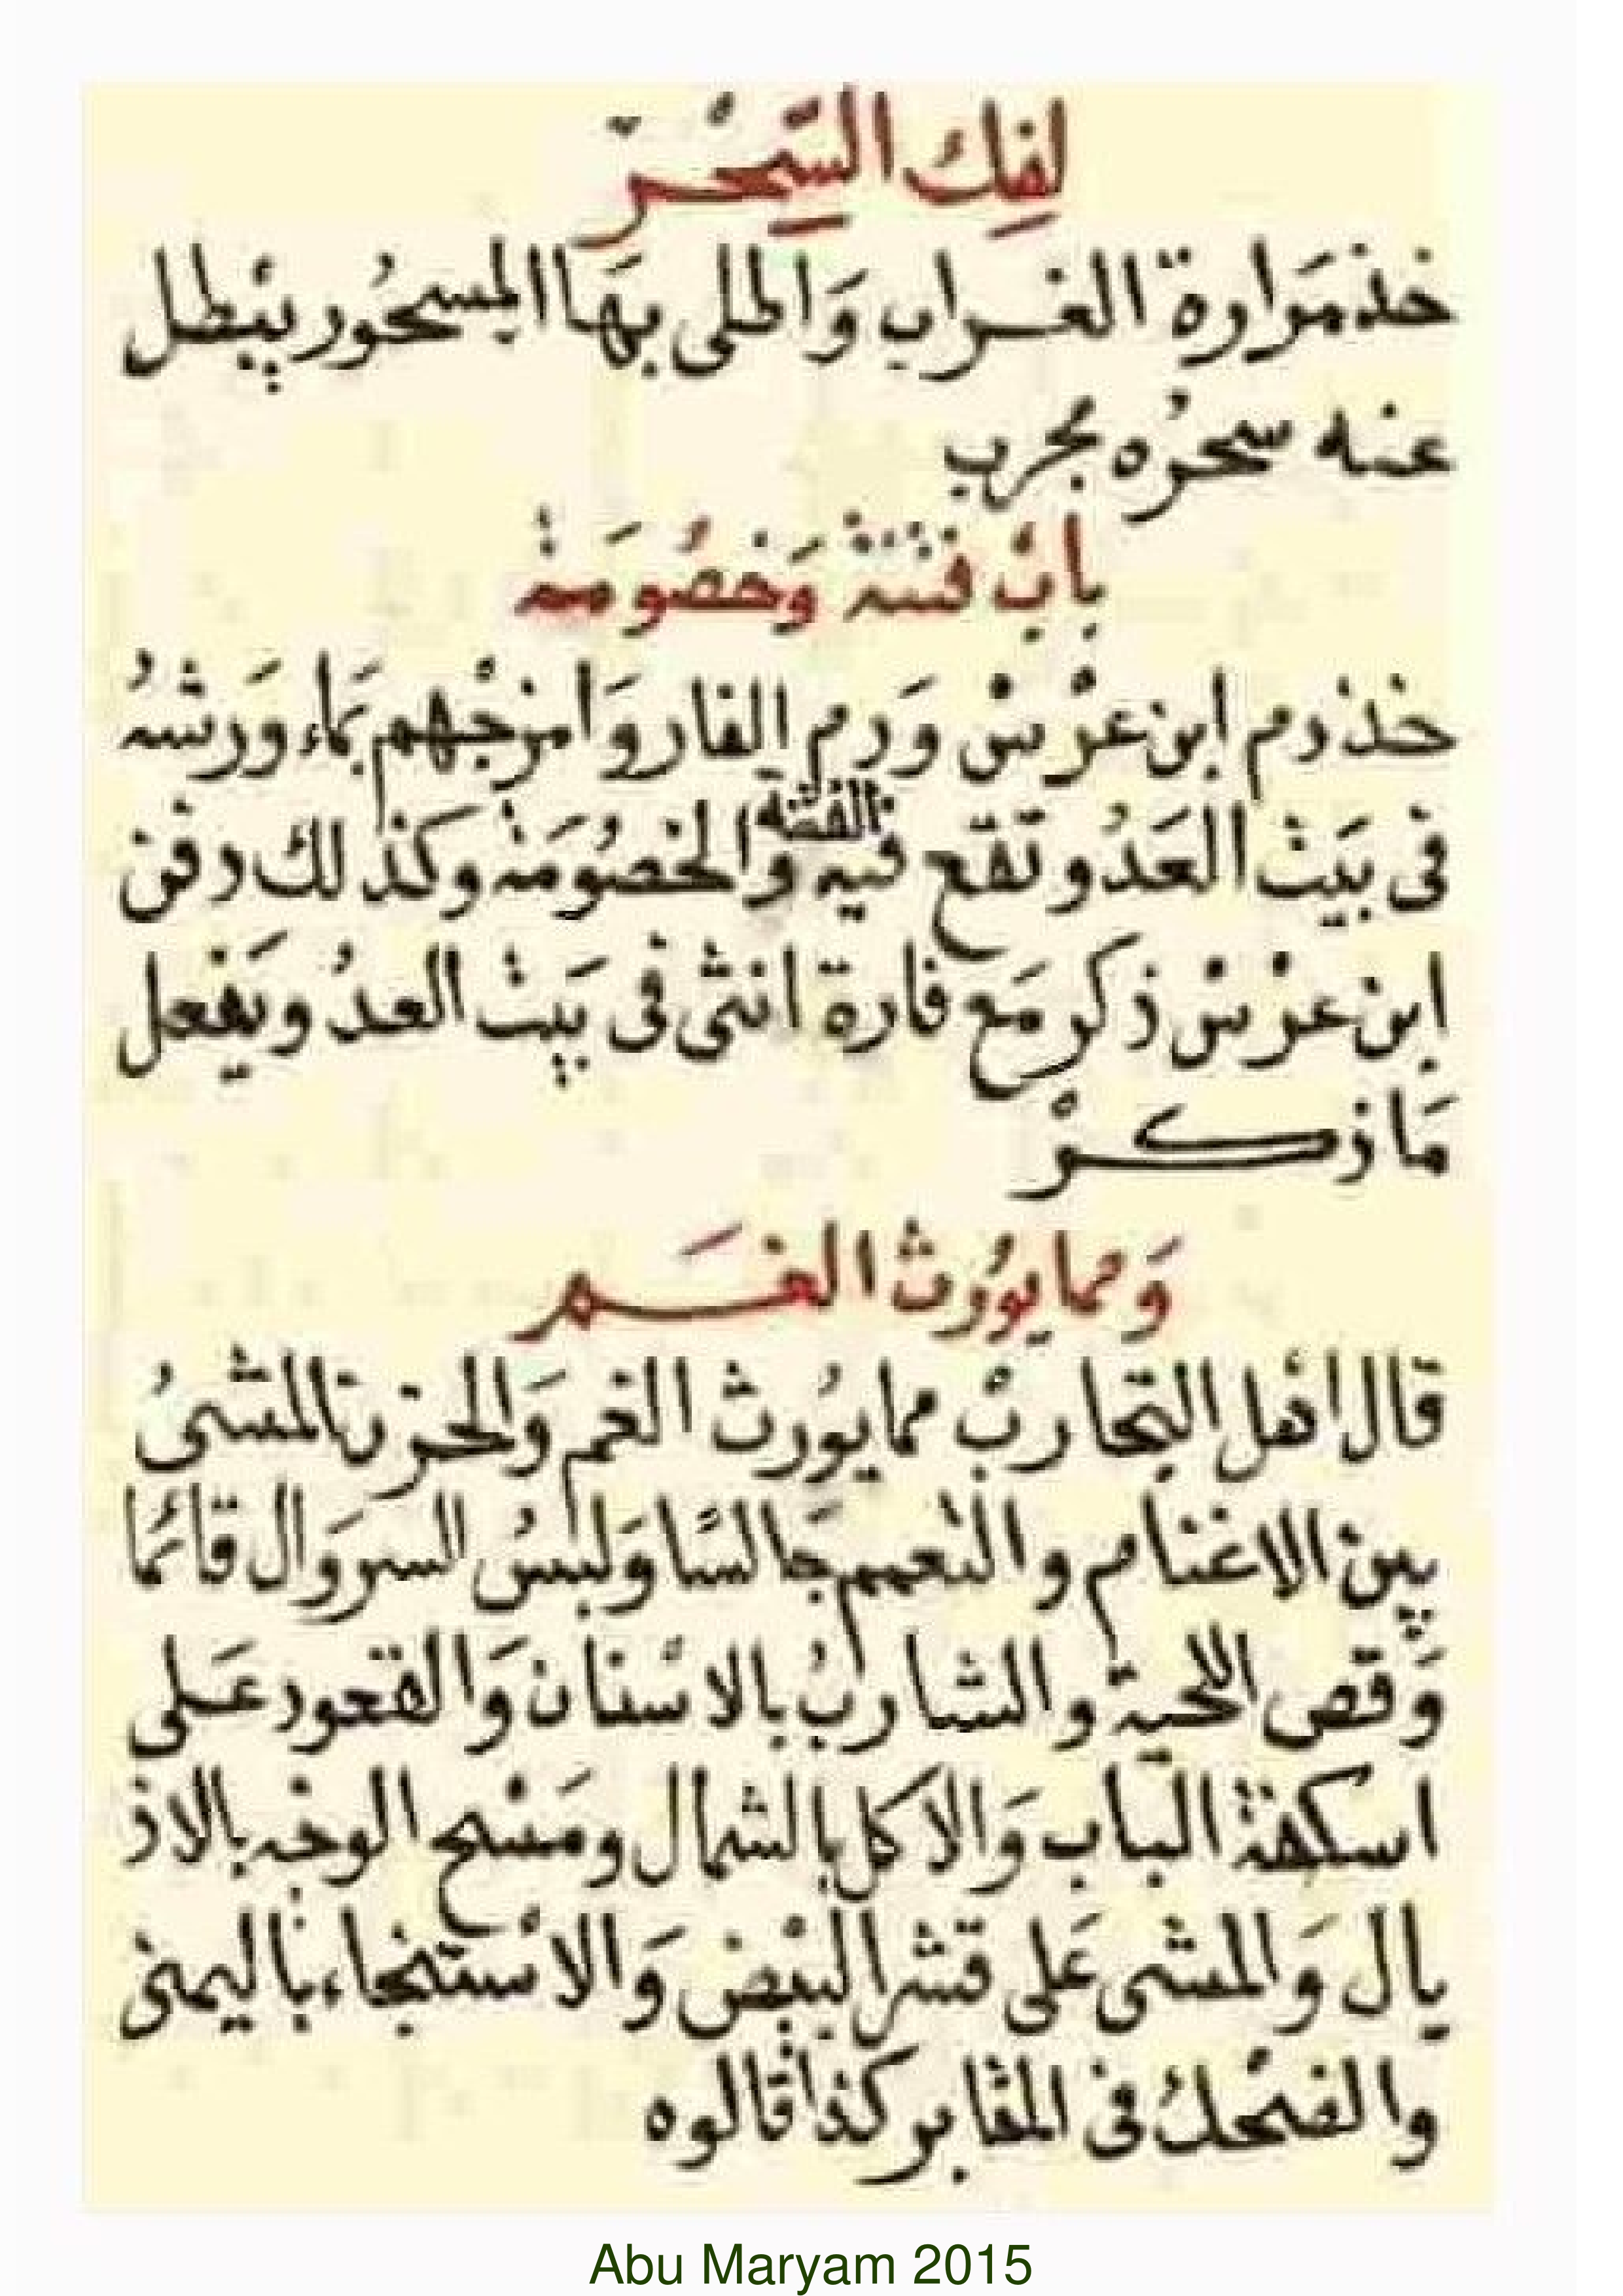 لفِك السِّحْرّ
خذ مَرارة الغراب وَاطلى بهَا المسحُور يبْطل
عنه سحرُه مجرب
بابْ فتْنة وَخصُومَة
خذ دم ابن عرْسْ وَدم الفار وَامزجْهم بمَاء وَرشهُ
فى بَيْت العَدُو تقع فيه الفتنة والخصُومَة وكذلك دفن
ابن عرْسْ ذكر مَع فارة انثى فى بَيْت العدُ ويَفعل
مَا ذكرْ
وَمما يوُرث الغَم
قال اهْل التجاربْ مما يوُرث الغم وَالحزن المشىُ
بين الاغنام والتعميم جَالسًا وَلبسُ السروَال قائمًا
وَقص اللحية والشاربْ بالاسْنان وَالقعود عَلى
اسكفة الباب وَالاكل بالشمال ومَسْح الوجْه بالاذ
يال وَالمشى عَلى قشر البيْض وَالاسْتنجاء باليمنى
والضحْكُ فى المقابر كذا قالوه
Abu Maryam 2015